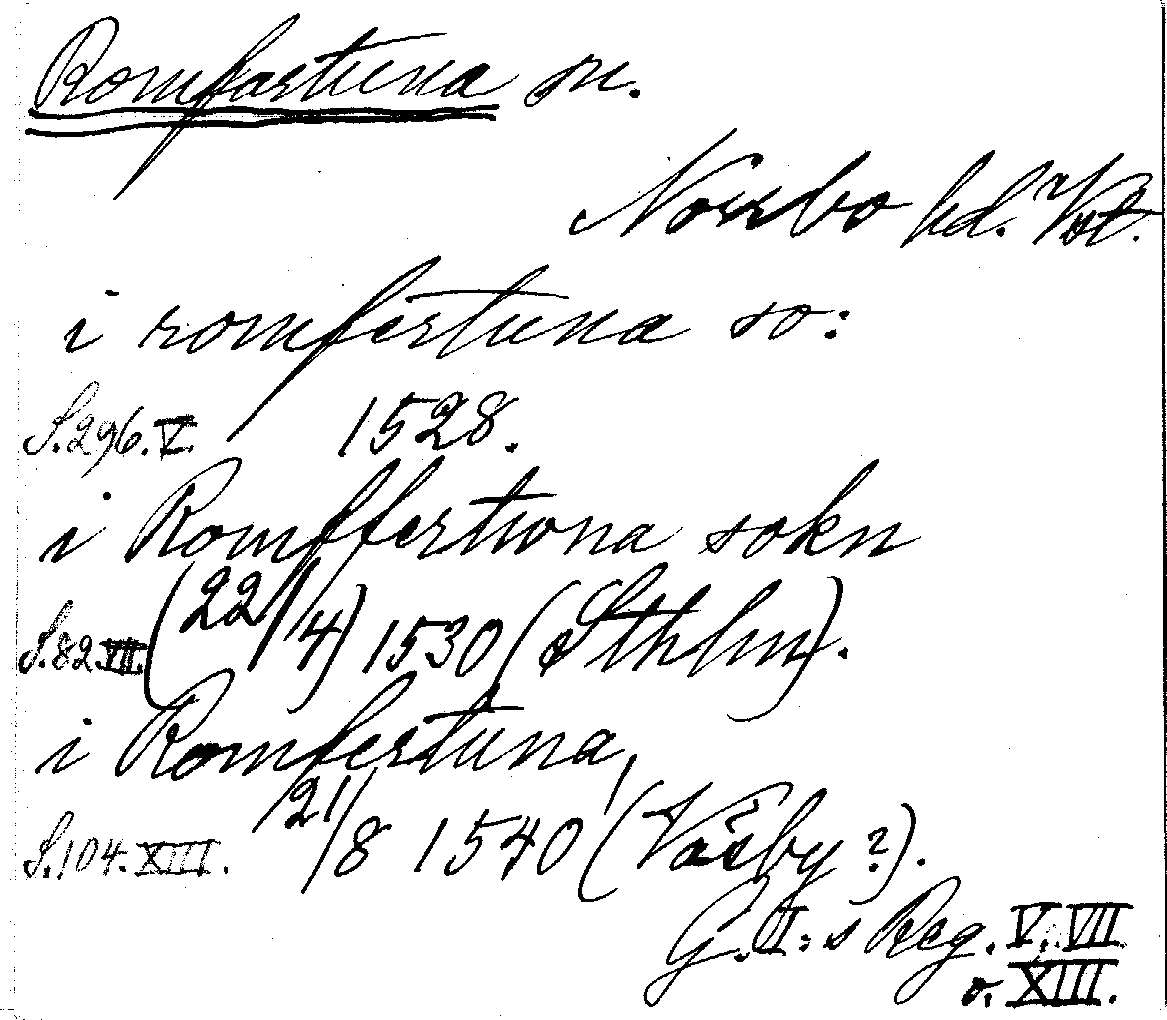 Romfartuna sn.
Norrbo hd. Vst.
i romfertuna so:
S.296.V. 1528.
i Romffertwna sokn
S.82.VII. (22/4) 1530 (Sthlm).
i Romfertuna,
S.104.XIII. 21/8 1540 (Väsby?).
G. I:s Reg. V, VII
o. XIII.